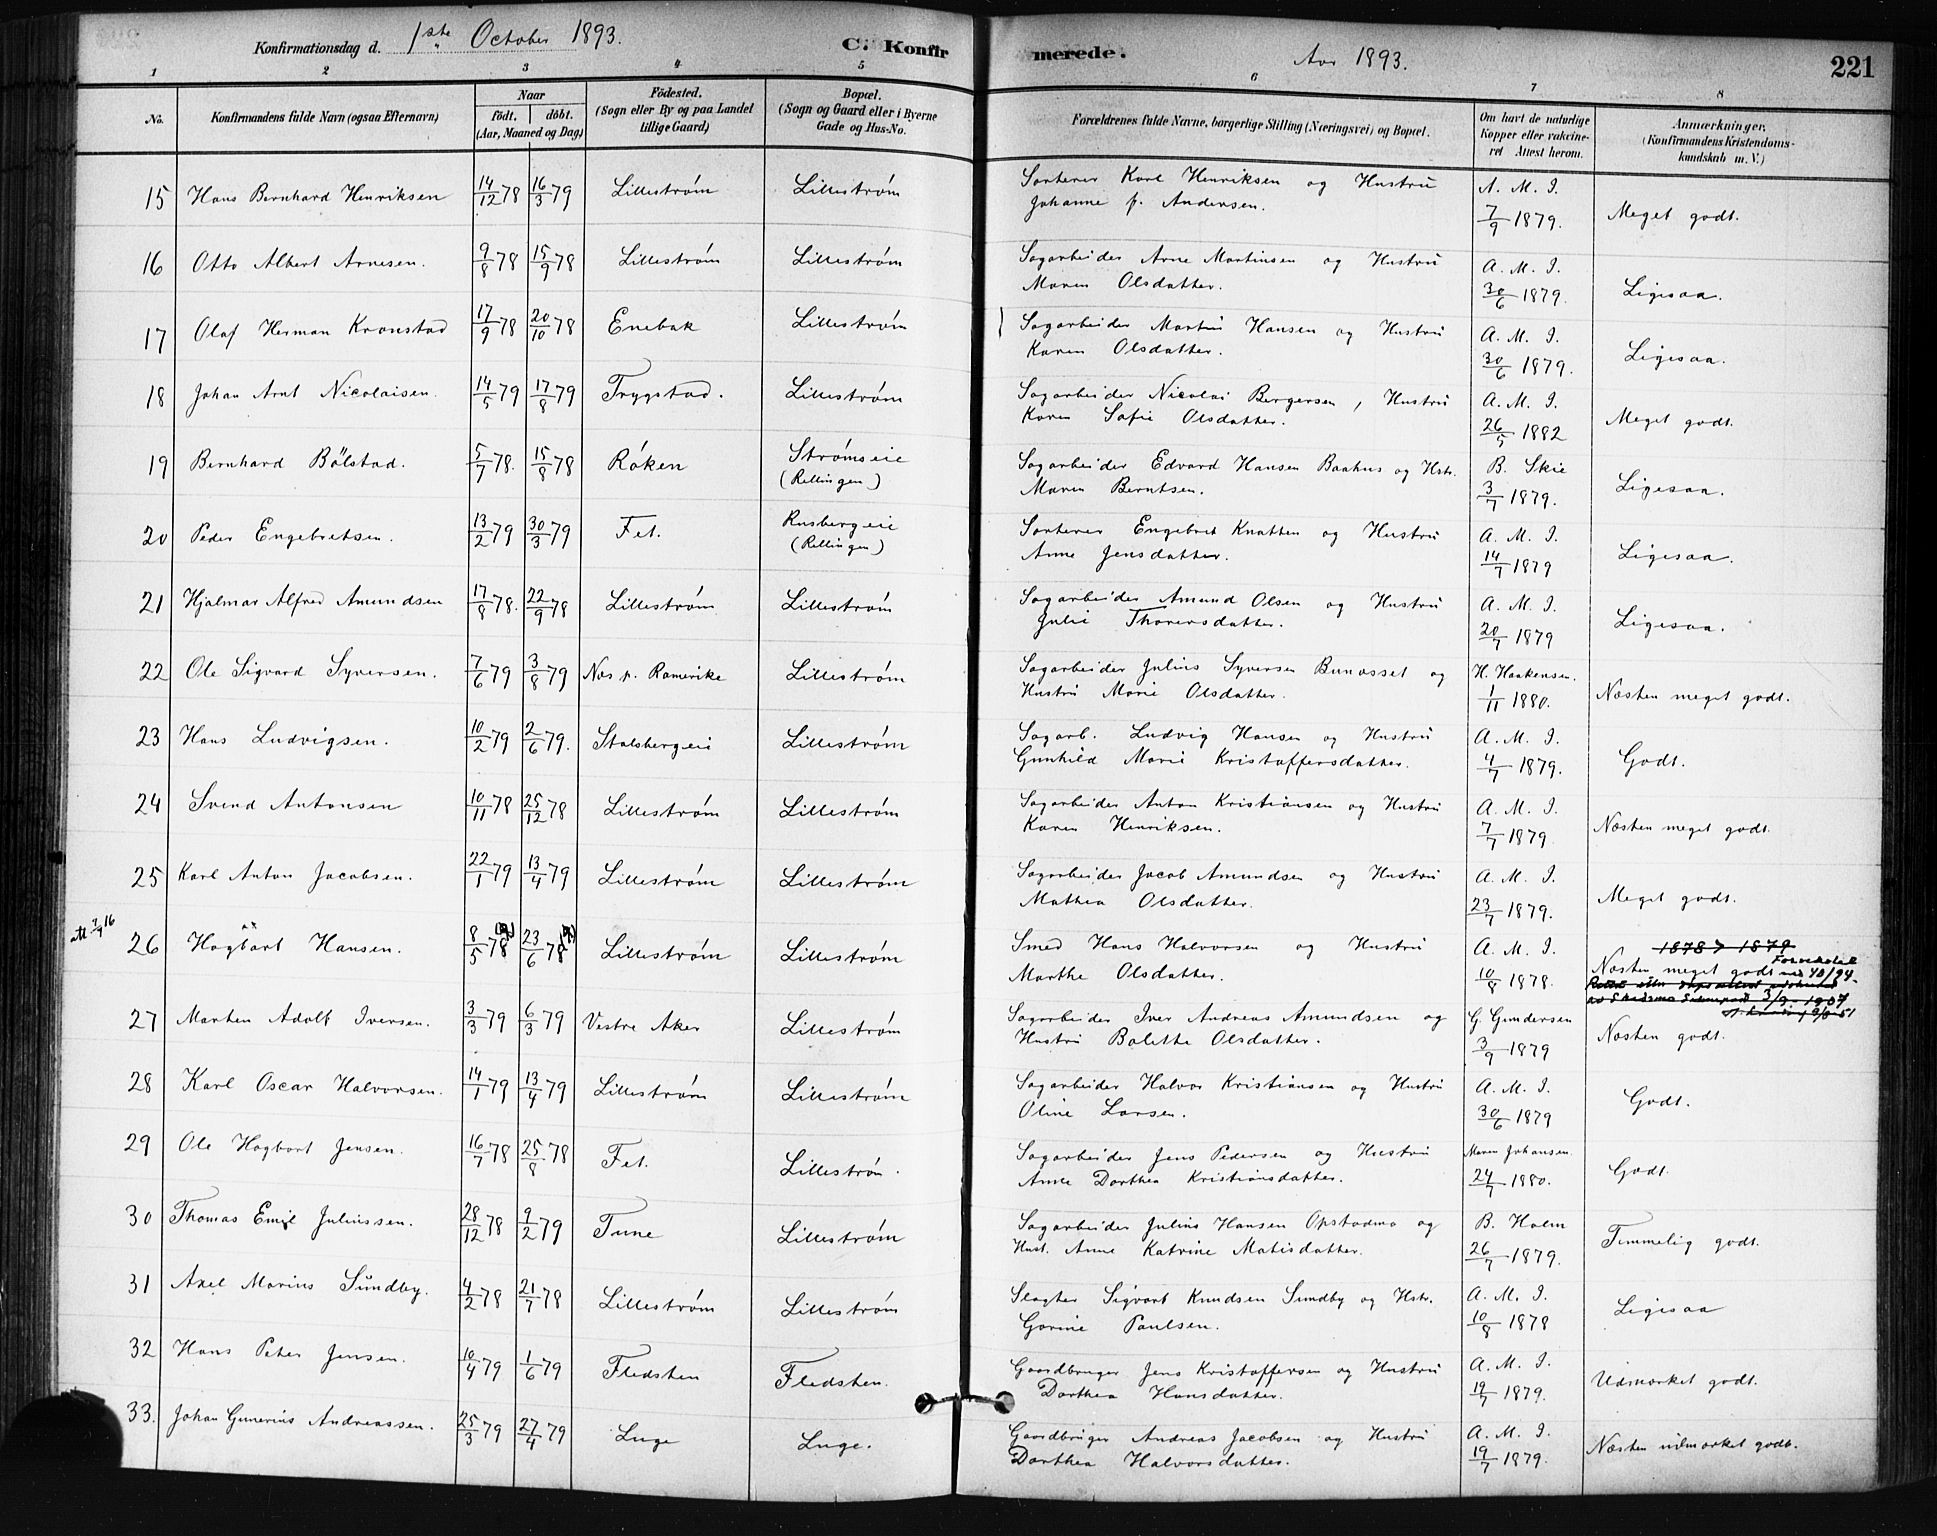 Konfirmationsdag d. 1ste October 1893. C. Konfirmerede. Aar 1893. 221
1 2 3 4 5 6 7 8
No. Konfirmandens fulde Navn (ogsaa Efternavn) Naar födt. döbt. (Aar, Maaned og Dag) Födested. (Sogn eller By og paa Landet tillige Gaard) Bopæl. (Sogn og Gaard eller i Byerne Gade og Hus-No. Forældrenes fulde Navne, borgerlige Stilling (Næringsvei) og Bopæl. Om havt de naturlige Kopper eller vakcineret Attest herom. Anmærkninger. (Konfirmandens Kristendomskundskab m. V.)
15 Hans Bernhard Henriksen 14/12 78 16/3 79 Lillestrøm Lillestrøm Sorterer Karl Henriksen og Hustru A. M. I.
Johanne f. Andersen. 7/9 1879. Meget godt.
16 Otto Albert Arnesen. 9/8 78 15/9 78 Lillestrøm Lillestrøm Sagarbeider Arne Martinsen og Hustru A. M. I.
Maren Olsdatter. 30/6 1879. Ligesaa.
17 Olaf Herman Kronstad 17/9 78 20/10 78 Enebak Lillestrøm Sagarbeider Martin Hansen og Hustru A. M. I.
Karen Olsdatter. 30/6 1879. Ligesaa.
18 Johan Arnt Nicolaisen. 14/5 79 17/8 79 Trygstad. Lillestrøm Sagarbeider Nicolai Bergersen, Hustru A. M. I.
Karen Sofie Olsdatter. 26/5 1882 Meget godt.
19 Bernhard Bölstad. 5/7 78. 15/8 78 Røken Strømseie (Rellingen) Sagarbeider Edvard Hansen Baahus og Hstr. B. Skie
Maren Berntsen. 3/7 1879. Ligesaa.
20 Peder Engebretsen. 13/2 79 30/3 79 Fet. Rusbergeie (Rellingen) Sorterer Engebret Knatten og Hustru A. M. I.
Anne Jensdatter. 14/7 1879 Ligesaa.
21 Hjalmar Alfred Amundsen 17/8 78. 22/9 78 Lillestrøm Lillestrøm Sagarbeider Amund Olsen og Hustru A. M. I.
Julie Thorersdatter. 20/7 1879 Ligesaa.
22 Ole Sigvard Syversen. 7/6 79 3/8 79 Nes p. Romerike Lillestrøm Sagarbeider Julius Syversen Bunæsset og H. Haakensen.
Hustru Marie Olsdatter. 1/11 1880. Næsten meget godt.
23 Hans Ludvigsen. 10/2 79 2/6 79. Stalsbergeie Lillestrøm Sagarb. Ludvig Hansen og Hustru A. M. I.
Gunhild Marie Kristoffersdatter. 4/7 1879. Godt.
24 Svend Antonsen 10/11 78 25/12 78 Lillestrøm Lillestrøm Sagarbeider Anton Kristiansen og Hustru A. M. I.
Karen Henriksen. 7/7 1879 Næsten meget godt.
25 Karl Anton Jacobsen. 22/1 79 13/4 79 Lillestrøm Lillestrøm Sagarbeider Jacob Amundsen og Hustru A. M. I.
Mathea Olsdatter. 23/7 1879. Meget godt.
26 Hagbart Hansen. 8/5 78 23/6 78 Lillestrøm Lillestrøm Smed Hans Halvorsen og Hustru A. M. I. 1878 > 1879
Marthe Olsdatter. 10/8 1878. Næsten meget godt
27 Marten Adolf Iversen. 3/3 79 6/3 79 Vestre Aker Lillestrøm Sagarbeider Iver Andreas Amundsen og G. Gundersen
Hustru Bolette Olsdatter. 3/9 1879 Næsten godt.
28 Karl Oscar Halvorsen. 14/1 79 13/4 79 Lillestrøm Lillestrøm Sagarbeider Halvor Kristiansen og Hustru A. M. I.
Oline Larsen. 30/6 1879 Godt.
29 Ole Hagbart Jensen. 16/7 78 25/8 78 Fet. Lillestrøm. Sagarbeider Jens Pedersen og Hustru Maren Johansen.
Anne Dorthea Kristiansdatter. 24/7 1880. Godt.
30 Thomas Emil Juliussen. 28/12 78 9/2 79 Tune Lillestrøm Sagarbeider Julius Hansen Opstadmo og B. Holm
Hust. Anne Katrine Matisdatter. 26/7 1879. Temmelig godt.
31 Axel Marius Sundby. 4/2 78 21/7 78 Lillestrøm Lillestrøm Slagter Sigvart Knudsen Sundby og Hstr. A. M. I.
Gorine Paulsen. 10/8 1878 Ligesaa
32 Hans Peter Jensen. 10/4 79 1/6 79 Fledsten Fledsten. Gaardbruger Jens Kristoffersen og Hustru A. M. I.
Dorthea Hansdatter. 19/7 1879. Udmærket godt.
33. Johan Gunerius Andreassen. 25/3 79 27/4 79 Luge Luge. Gaardbruger Andreas Jacobsen og Hustru A. M. I.
Dorthea Halvorsdatter. 19/7 1879. Næsten udmærket godt.